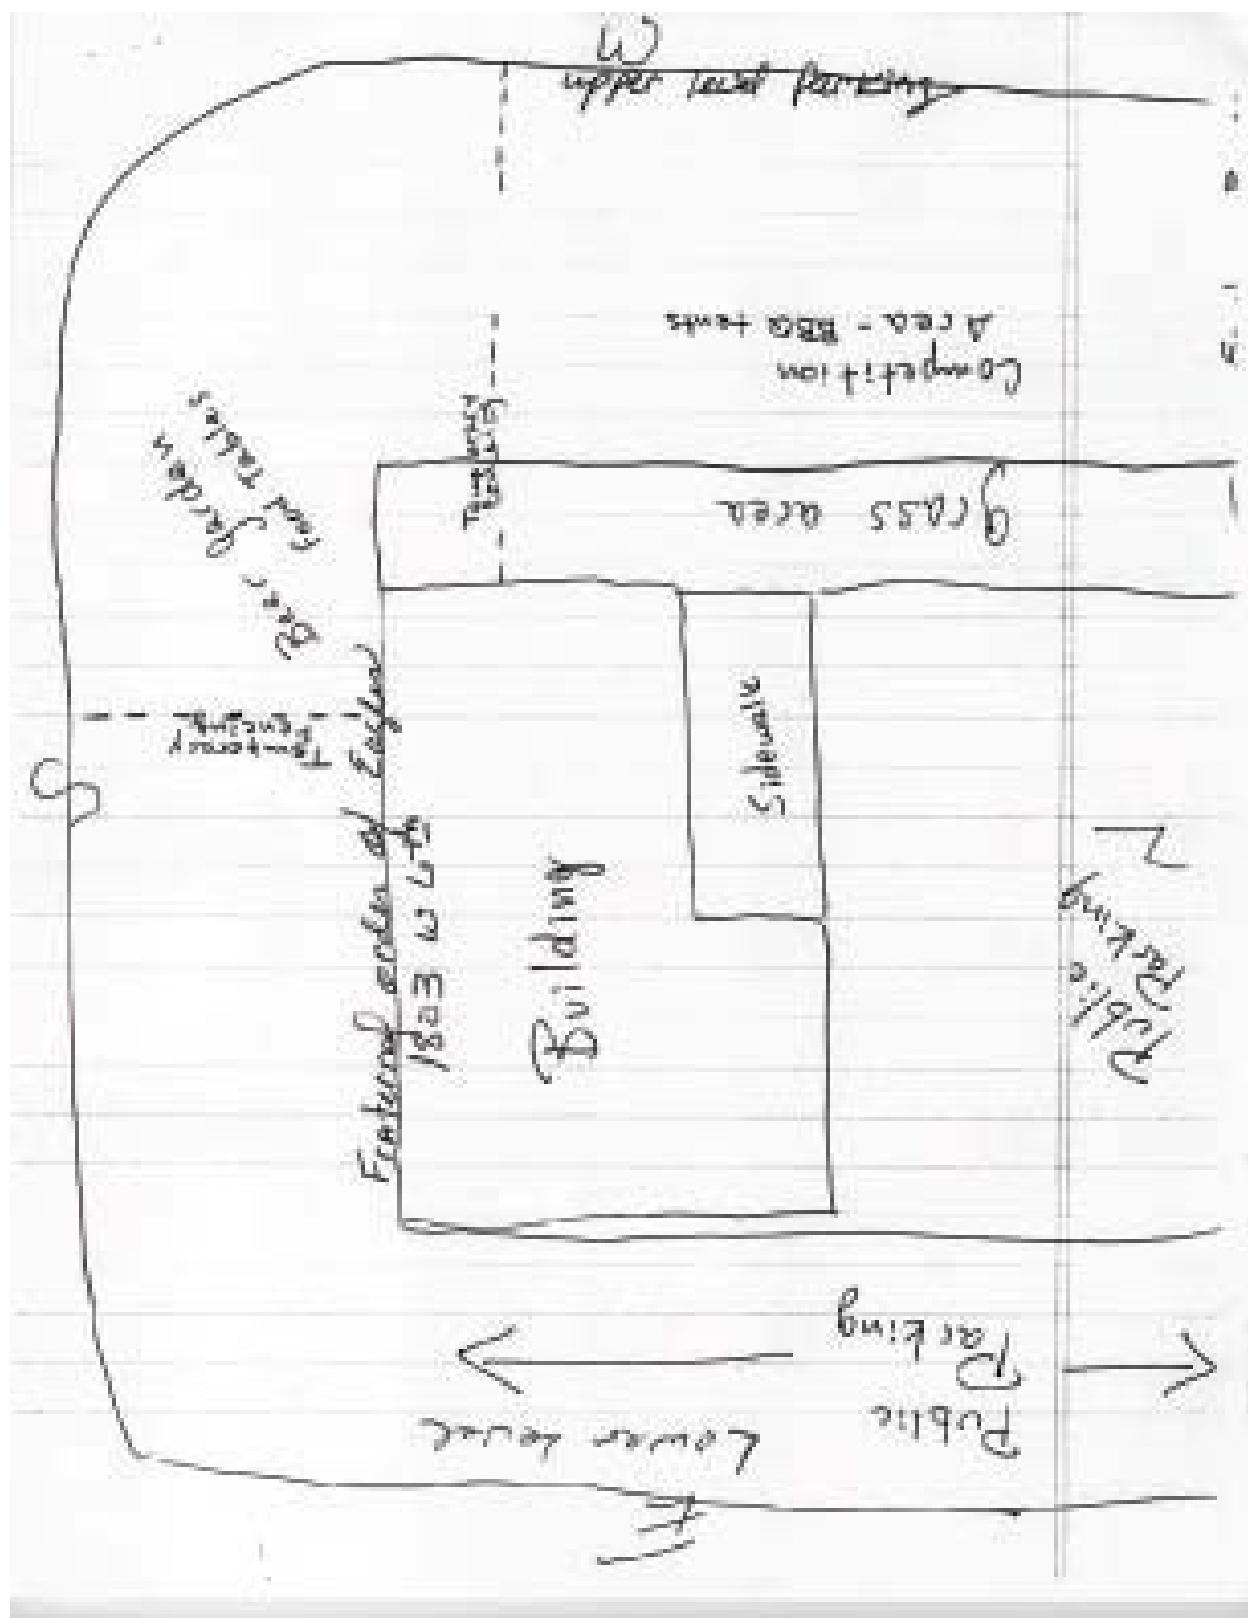 W
upper level parking
Competition
Area - BBQ tents
Temporary
Fencing
grass area
Beer Garden
Food Tables
Temporary
Fencing
S
Fraternal order of Eagles
1803 W 6th
Building
Sidewalk
N
Public
Parking
Public
Parking
Lower Level
E